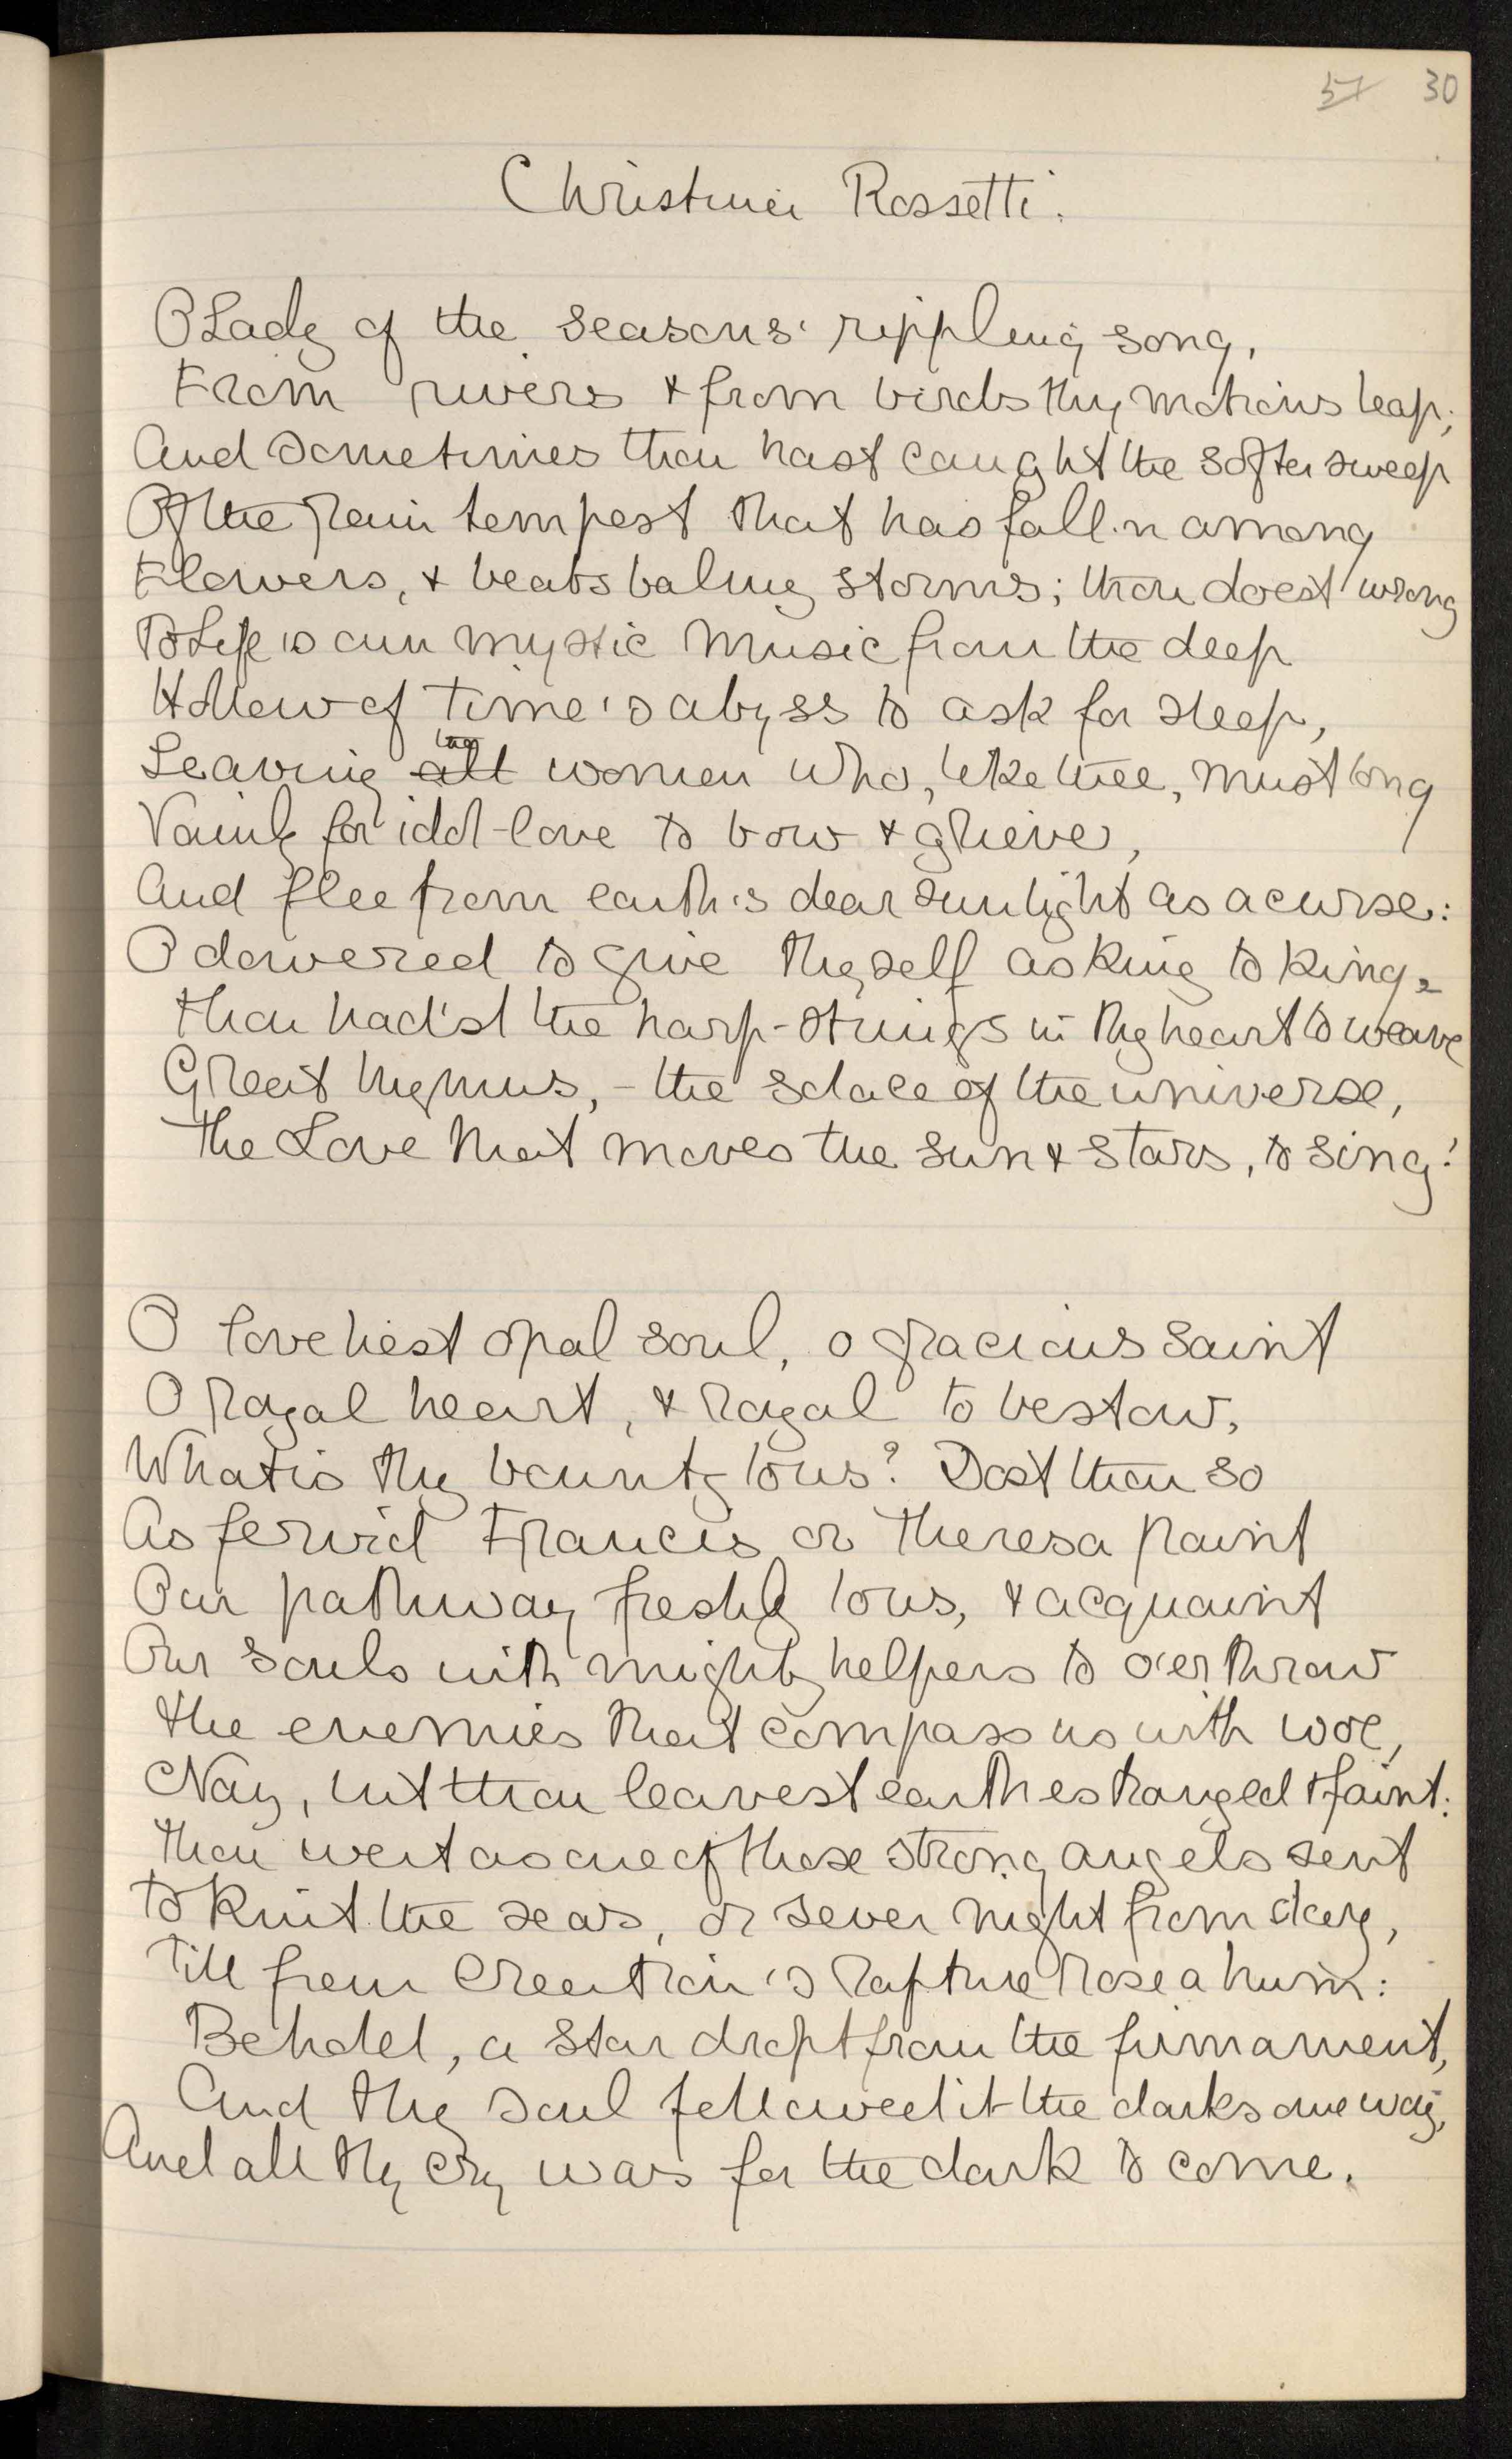 57 30
Christina Rossetti.
O Lady of the seasons' rippling song,
From rivers & from birds thy motions leap;
And sometimes thou hast caught the softer sweep
Of the rain tempest that has fall'n among
Flowers, & beats balmy storms; thou doest wrong
To Life's own mystic music from the deep
Hollow of Time's abyss to ask for sleep,
Leaving all women who, like thee, must long
Vainly for idol-love to bow & grieve,
And flee from earth's dear sunlight as a curse:
O dowered to give thyself as King to King,
Thou had'st the harp-strings in thy heart to weave
Great hymns, - the solace of the universe,
The Love that moves the sun & stars, to sing!
O loveliest opal soul, o gracious saint
O Royal heart, & Royal to bestow,
What is thy bounty to us? Dost thou so
As fervid Francis or Theresa paint
Our pathway freshly to us, & acquaint
Our souls with mighty helpers to o'erthrow
The enemies that compass us with woe,
Nay, but thou leavest earth estranged & faint:
Thou wert as one of those strong angels sent
To knit the seas, or sever night from day,
Till from Creation's rapture rose a hum:
Behold, a star dropt from the firmament,
And thy soul followed it the darksome way,
And all thy cry was for the dark to come.